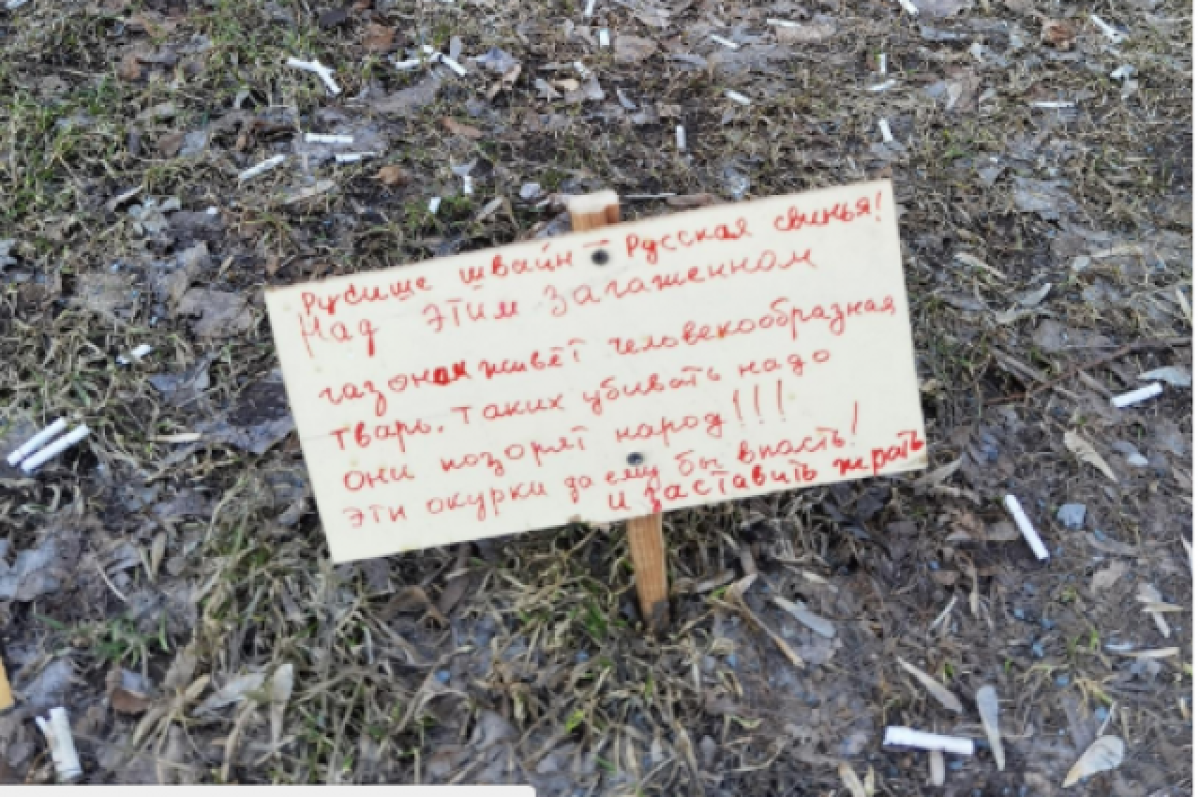 Русише швайн – Русская свинья!
Над этим загаженном
газонах живёт человекообразная
тварь. таких убивать надо
они позорят народ!!!
эти окурки да ему бы в пасть!
и заставить жрать